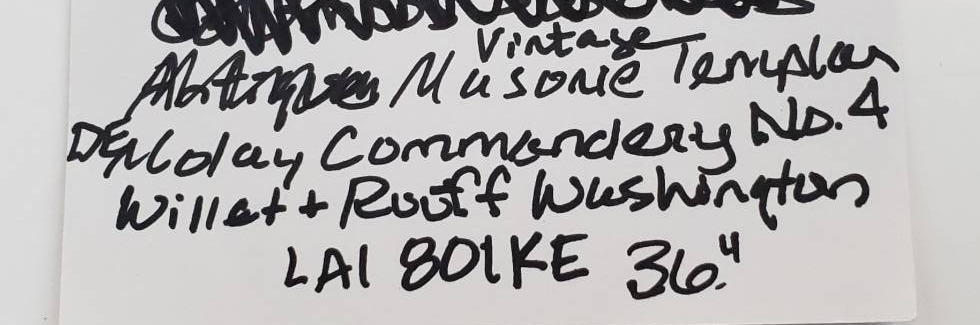 Vintage
Masonic Templar
DEMolay Commandery No. 4
Willet + Ruoff Washington
LAI 801KE 36."